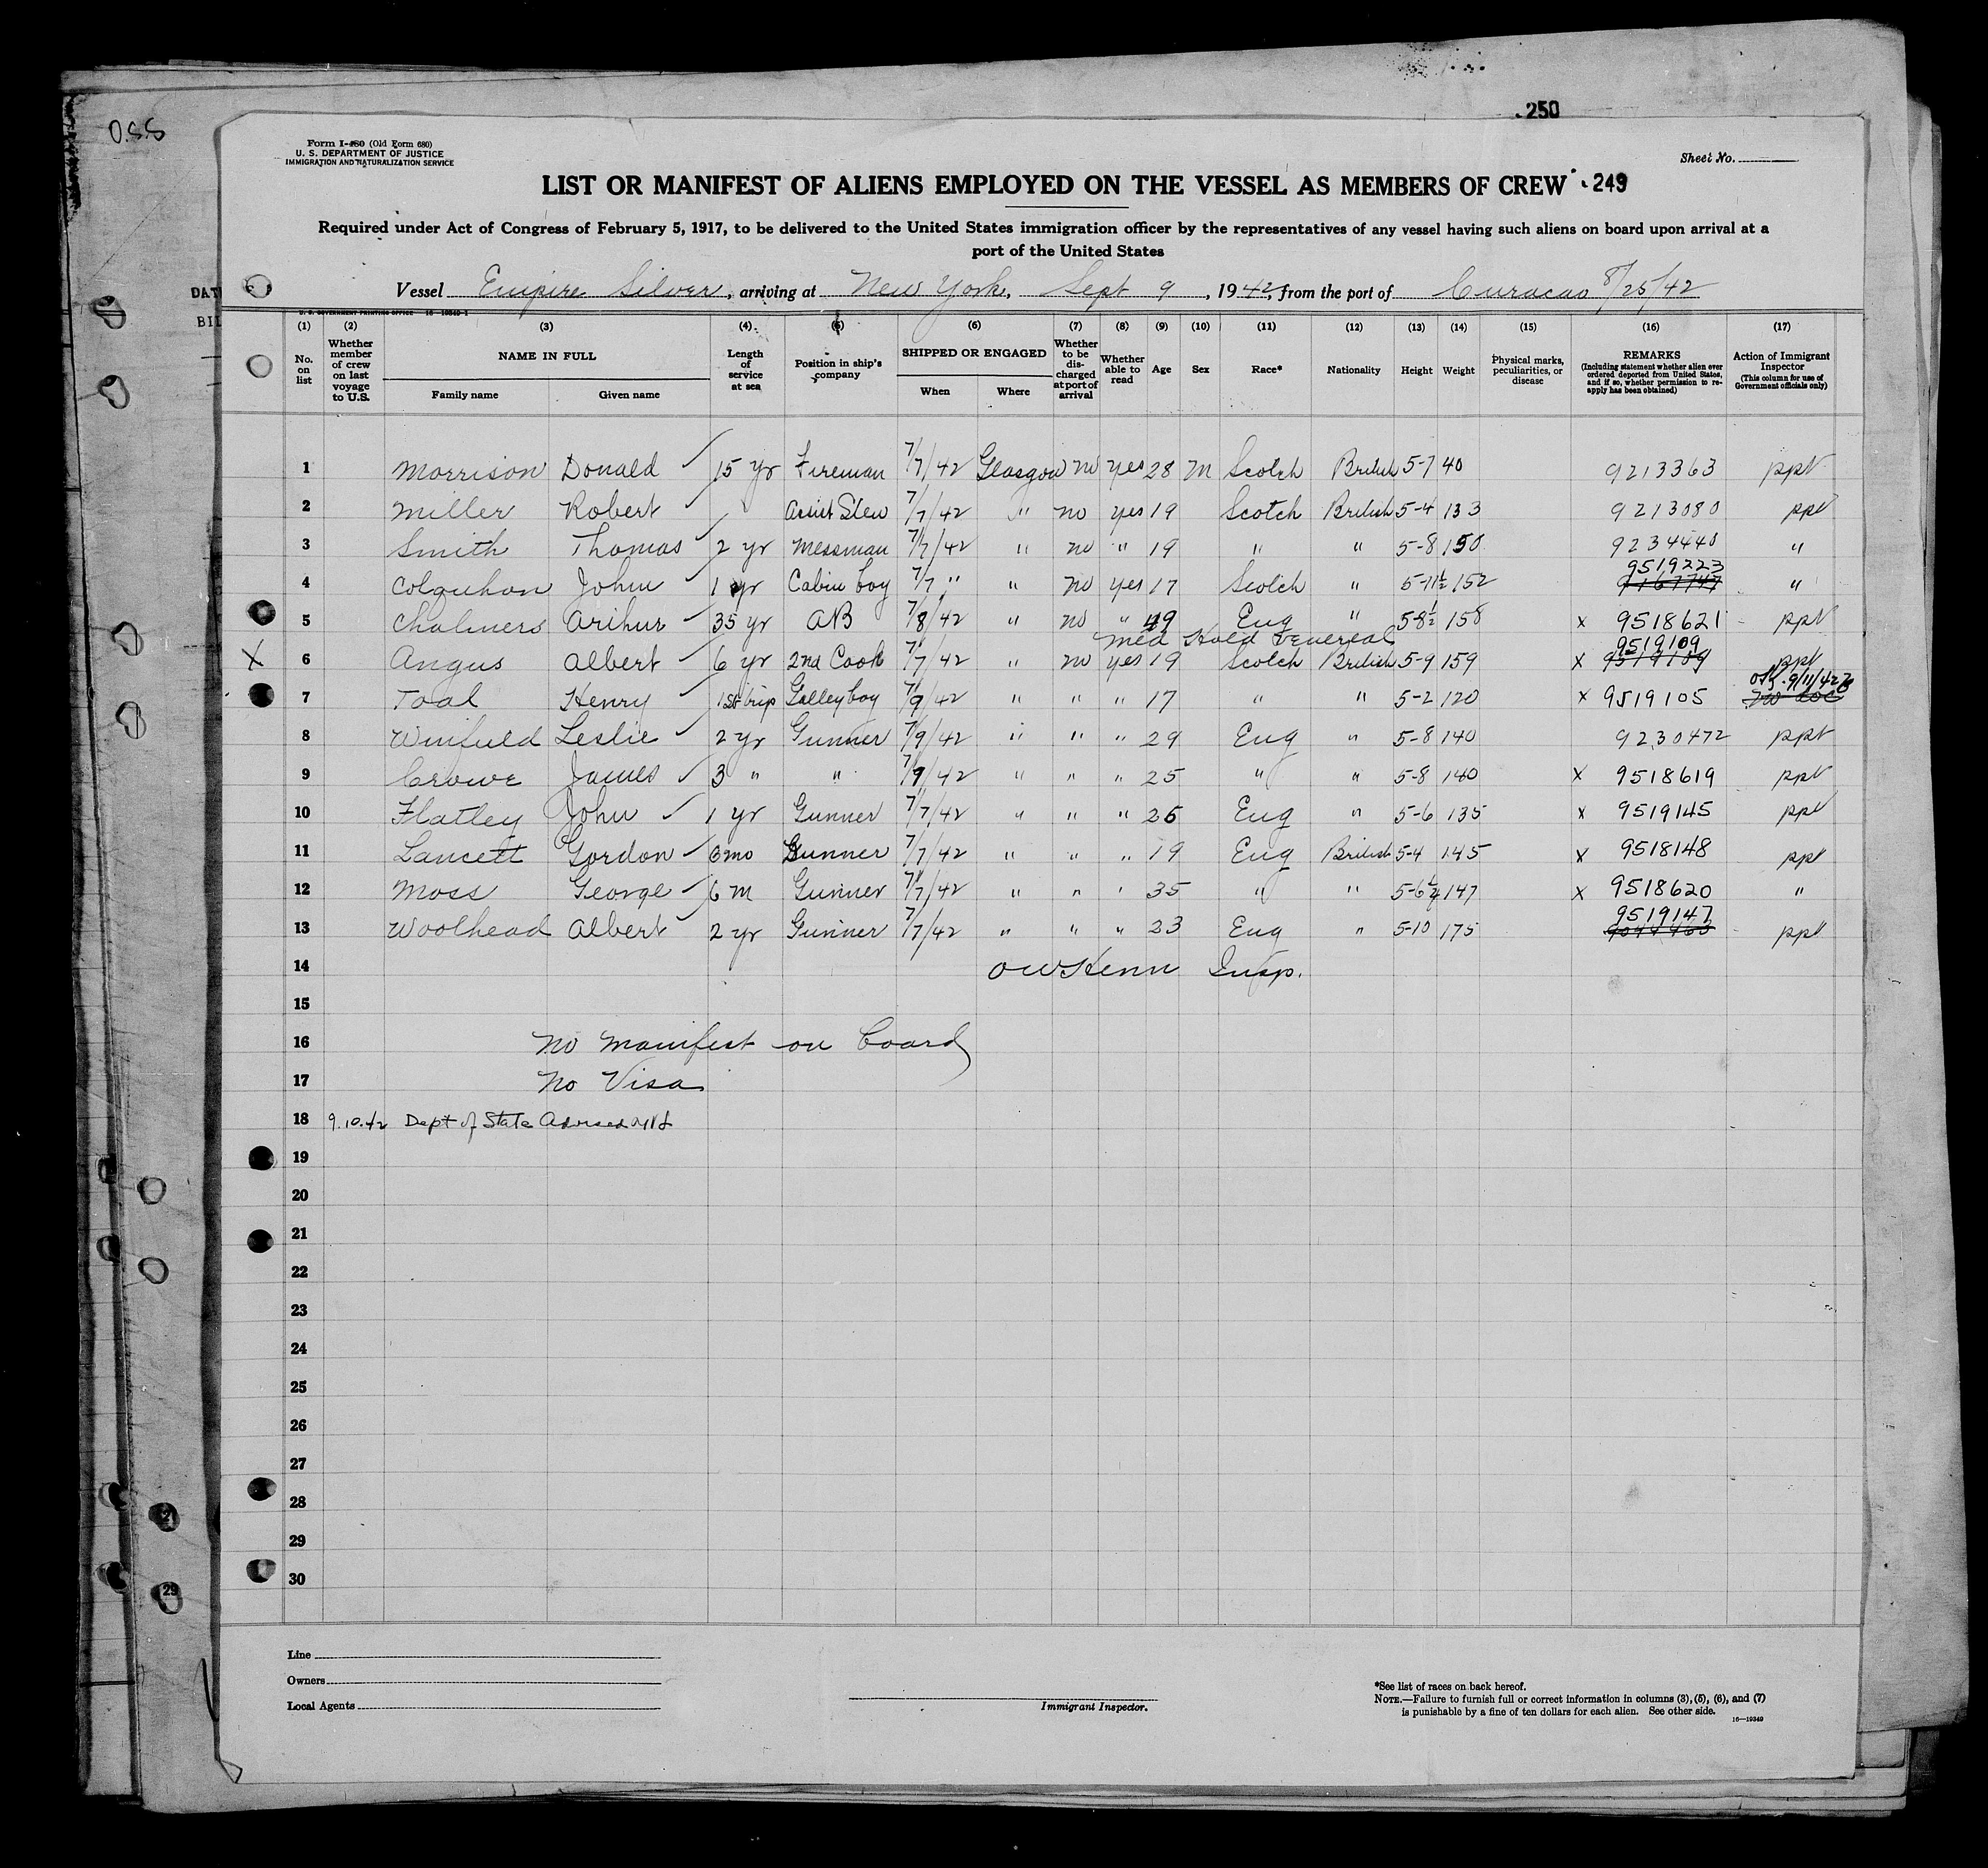 O.S.S
250
Form I-480 (Old Form 680)
U. S. DEPARTMENT OF JUSTICE
IMMIGRATION AND NATURALIZATION SERVICE
Sheet No.
LIST OR MANIFEST OF ALIENS EMPLOYED ON THE VESSEL AS MEMBERS OF CREW 249
Required under Act of Congress of February 5, 1917, to be delivered to the United States immigration officer by the representatives of any vessel having such aliens on board upon arrival at a
port of the United States
DAT
BIL
Vessel Empire Silver, arriving at New York, Sept 9, 1942, from the port of Curacao 8/25/42
U. S. GOVERNMENT PRINTING OFFICE 16-19349-1
(1) (2) (3) (4) (5) (6) (7) (8) (9) (10) (11) (12) (13) (14) (15) (16) (17)
No. on list
Whether member of crew on last voyage to U.S.
NAME IN FULL
Family name Given name
Length of service at sea
Position in ship's company
SHIPPED OR ENGAGED
When Where
Whether to be discharged at port of arrival
Whether able to read
Age
Sex
Race*
Nationality
Height
Weight
Physical marks, peculiarities, or disease
REMARKS
(Including statement whether alien ever ordered deported from United States, and if so, whether permission to reapply has been obtained)
Action of Immigrant Inspector
(This column for use of Government officials only)
1 Morrison Donald ✓ 15 yr Fireman 7/7/42 Glasgow no yes 28 M Scotch British 5-7 40 9213363 ppt
2 Miller Robert ✓ Assist Stew 7/7/42 " no yes 19 Scotch British 5-4 133 9213080 ppt
3 Smith Thomas ✓ 2 yr Messman 7/7/42 " no " 19 " " 5-8 150 9234440 "
9519223
4 Colquhon John ✓ 1 yr Cabin boy 7/7 " " no yes 17 Scotch " 5-11½ 152 "
5 Chalmers Arthur ✓ 35 yr AB 7/8/42 " no " 49 Eng " 5-8½ 158 x 9518621 ppt
Med Hold Venereal 9519109
X 6 Angus Albert ✓ 6 yr 2nd Cook 7/7/42 " no yes 19 Scotch British 5-9 159 x 9519109 ppt
9/11/42
7 Toal Henry ✓ 1st trip Galley boy 7/9/42 " " " 17 " " 5-2 120 x 9519105 No doc
8 Winfield Leslie ✓ 2 yr Gunner 7/9/42 " " " 29 Eng " 5-8 140 9230472 ppt
9 Crowe James ✓ 3 " " 7/9/42 " " " 25 " " 5-8 140 x 9518619 ppt
10 Flatley John ✓ 1 yr Gunner 7/7/42 " " " 25 Eng " 5-6 135 x 9519145 ppt
11 Lancett Gordon ✓ 6 mo Gunner 7/7/42 " " " 19 Eng British 5-4 145 x 9518148 ppt
12 Moss George ✓ 6 m Gunner 7/7/42 " " " 35 " " 5-6½ 147 x 9518620 "
9519147
13 Woolhead Albert ✓ 2 yr Gunner 7/7/42 " " " 23 Eng " 5-10 175 ppt
14 Insp.
15
16 No manifest on board
17 No Visa
18 9.10.42 Dept of State Advised
19
20
21
22
23
24
25
26
27
28
29
30
21
29
Line
Owners
Local Agents
Immigrant Inspector.
*See list of races on back hereof.
NOTE.—Failure to furnish full or correct information in columns (3), (5), (6), and (7)
is punishable by a fine of ten dollars for each alien. See other side.
16—19349